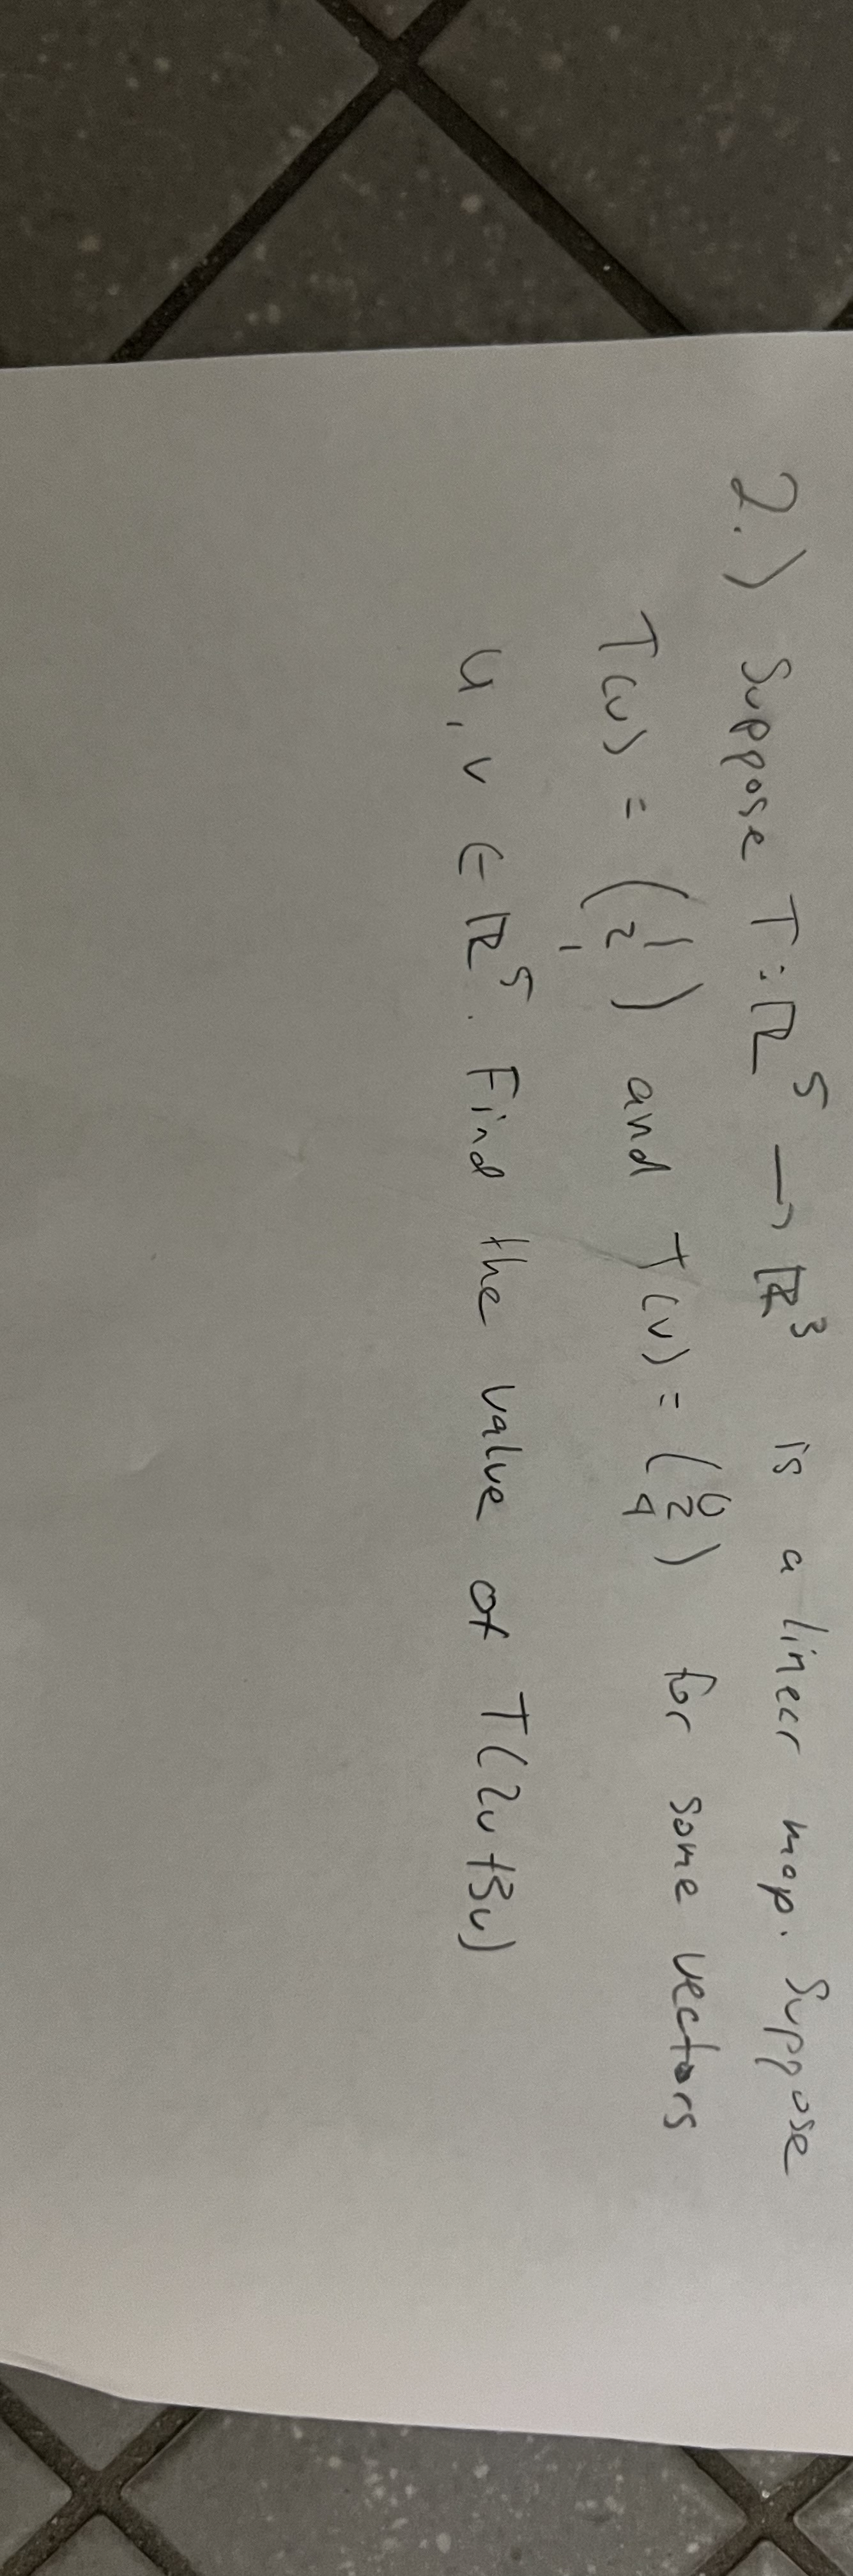 2.) Suppose T: ℝ⁵ → ℝ³ is a linear map. Suppose
T(u) = (1 2 1) and T(v) = (0 2 4) for some vectors
u, v ∈ ℝ⁵. Find the value of T(2u+3v)